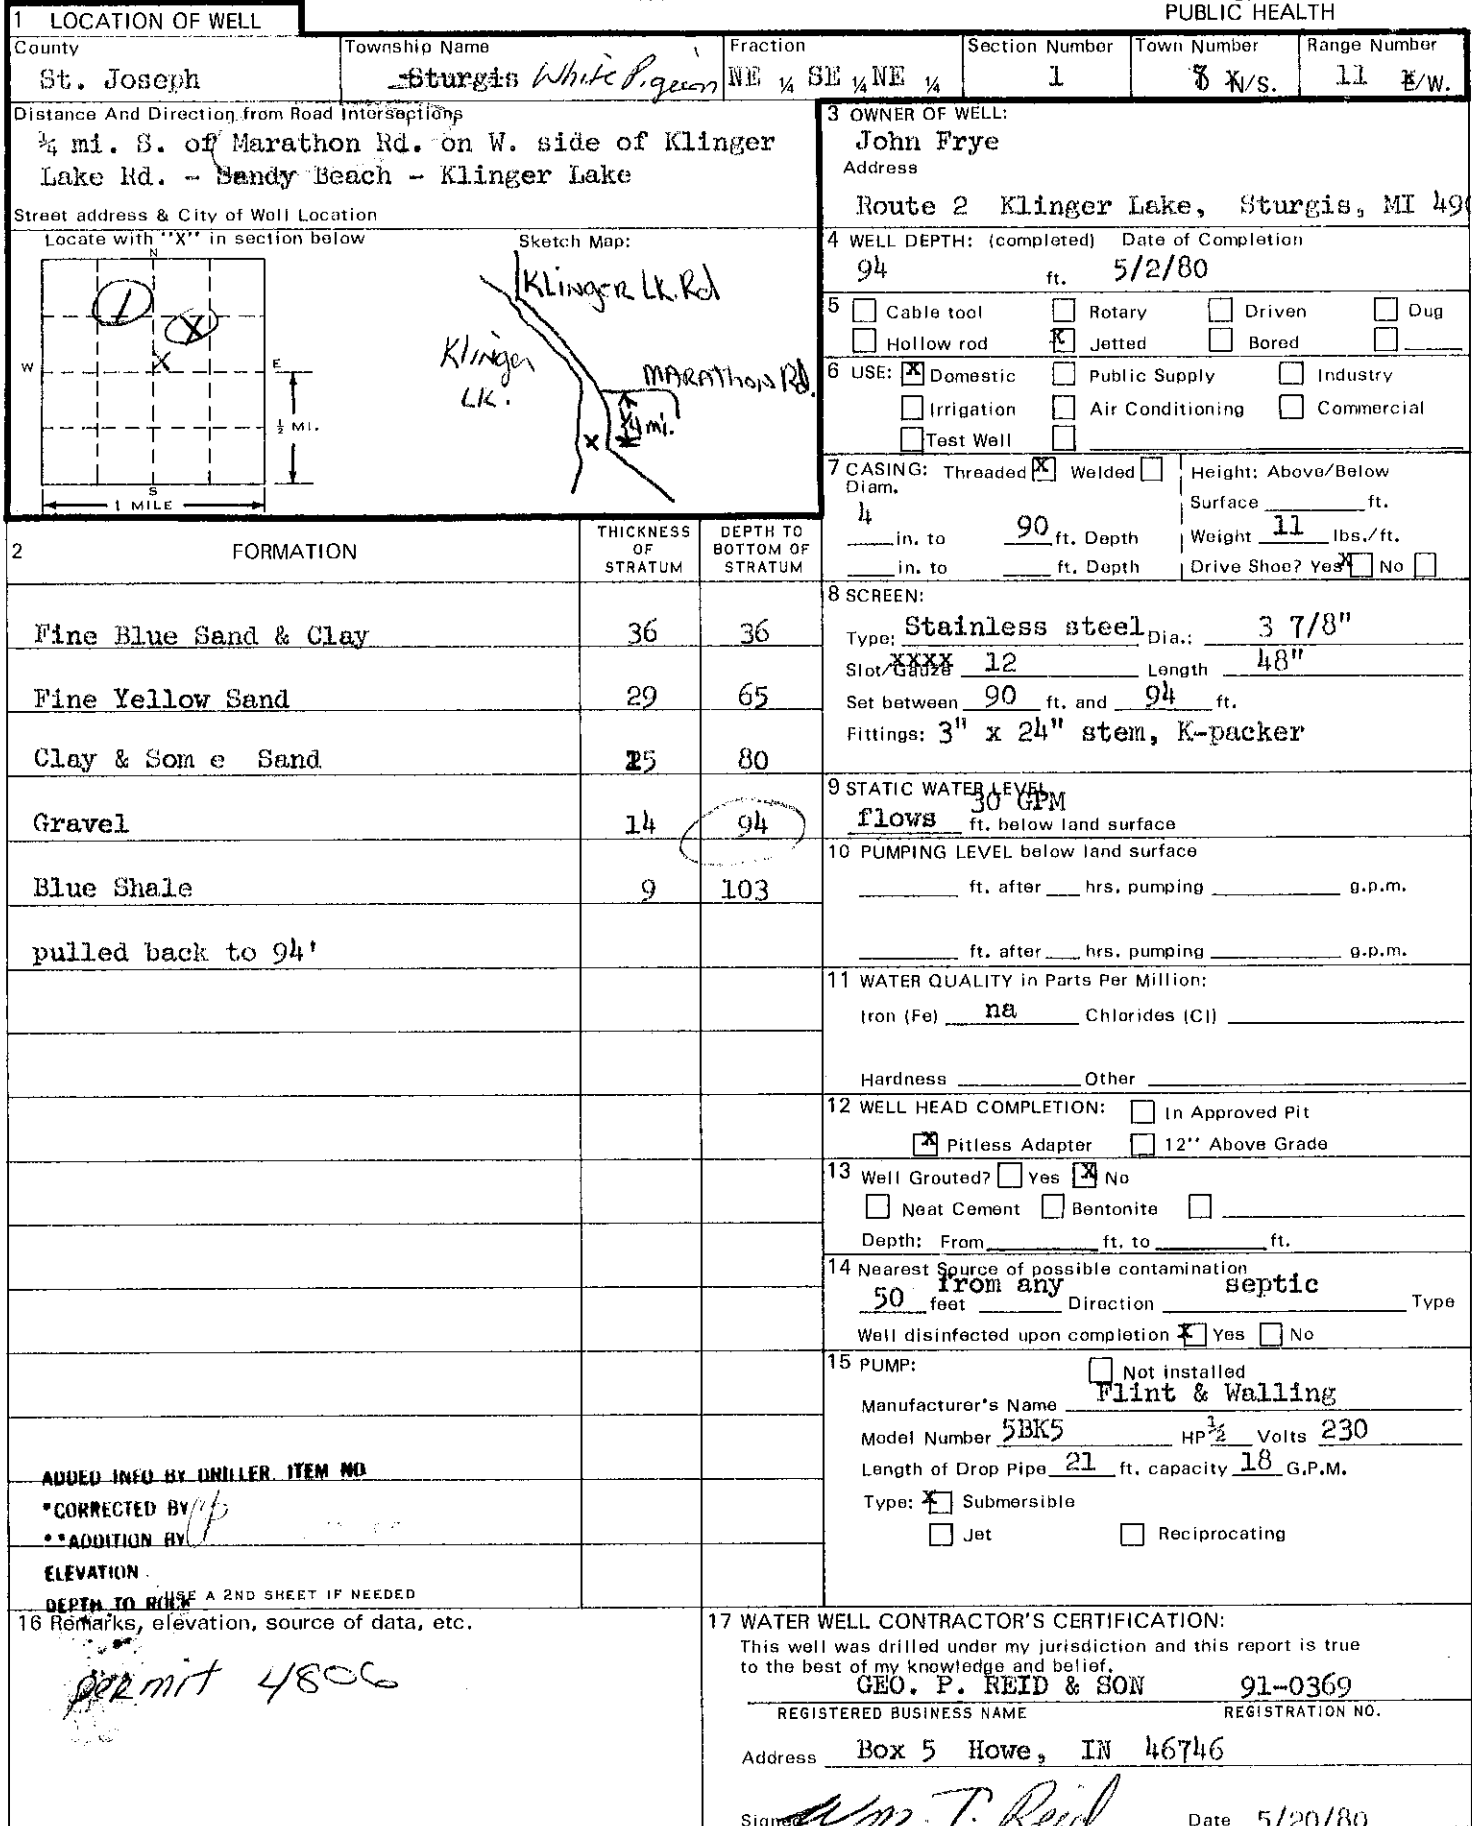 PUBLIC HEALTH
1 LOCATION OF WELL
County
St. Joseph
Township Name
Sturgis White Pigeon
Fraction
NE ¼ SE ¼ NE ¼
Section Number
1
Town Number
8 N/S.
Range Number
11 E/W.
Distance And Direction from Road Intersections
¼ mi. S. of Marathon Rd. on W. side of Klinger
Lake Rd. - Sandy Beach - Klinger Lake
Street address & City of Well Location
Locate with "X" in section below
N
1
X
X
W
E
½ MI.
S
1 MILE
Sketch Map:
Klinger Lk. Rd
Klinger
LK.
MARAThoN Rd.
¼ mi.
X
3 OWNER OF WELL:
John Frye
Address
Route 2 Klinger Lake, Sturgis, MI 49
4 WELL DEPTH: (completed) Date of Completion
94 ft. 5/2/80
5 Cable tool Rotary Driven Dug
Hollow rod X Jetted Bored
6 USE: X Domestic Public Supply Industry
Irrigation Air Conditioning Commercial
Test Well
7 CASING: Threaded X Welded
Diam.
4 in. to 90 ft. Depth
in. to ft. Depth
Height: Above/Below
Surface ft.
Weight 11 lbs./ft.
Drive Shoe? Yes X No
2 FORMATION
THICKNESS OF STRATUM
DEPTH TO BOTTOM OF STRATUM
Fine Blue Sand & Clay 36 36
Fine Yellow Sand 29 65
Clay & Som e Sand 15 80
Gravel 14 94
Blue Shale 9 103
pulled back to 94'
8 SCREEN:
Type: Stainless steel Dia.: 3 7/8"
Slot/Gauze xxxx 12 Length 48"
Set between 90 ft. and 94 ft.
Fittings: 3" x 24" stem, K-packer
9 STATIC WATER LEVEL
30 GPM
flows ft. below land surface
10 PUMPING LEVEL below land surface
ft. after hrs. pumping g.p.m.
ft. after hrs. pumping g.p.m.
11 WATER QUALITY in Parts Per Million:
Iron (Fe) na Chlorides (Cl)
Hardness Other
12 WELL HEAD COMPLETION: In Approved Pit
X Pitless Adapter 12'' Above Grade
13 Well Grouted? Yes X No
Neat Cement Bentonite
Depth: From ft. to ft.
14 Nearest Source of possible contamination
from any septic
50 feet Direction Type
Well disinfected upon completion X Yes No
15 PUMP: Not installed
Manufacturer's Name Flint & Walling
Model Number 5BK5 HP ½ Volts 230
Length of Drop Pipe 21 ft. capacity 18 G.P.M.
Type: X Submersible
Jet Reciprocating
ADDED INFO BY DRILLER. ITEM NO
*CORRECTED BY
**ADDITION BY
ELEVATION
DEPTH TO ROCK
USE A 2ND SHEET IF NEEDED
16 Remarks, elevation, source of data, etc.
permit 4806
17 WATER WELL CONTRACTOR'S CERTIFICATION:
This well was drilled under my jurisdiction and this report is true
to the best of my knowledge and belief.
GEO. P. REID & SON 91-0369
REGISTERED BUSINESS NAME REGISTRATION NO.
Address Box 5 Howe, IN 46746
Signed Wm. T. Reid Date 5/20/80